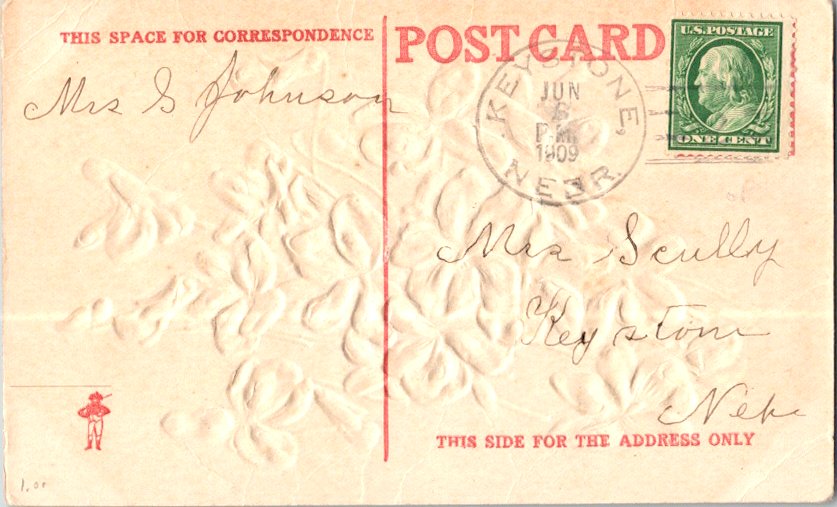 THIS SPACE FOR CORRESPONDENCE
POST CARD
U.S. POSTAGE
ONE CENT
KEYSTONE,
JUN
6
P.M.
1909
NEBR.
Mrs S Johnson
Mrs Scully
Keystone
Nebr
THIS SIDE FOR THE ADDRESS ONLY
1.00